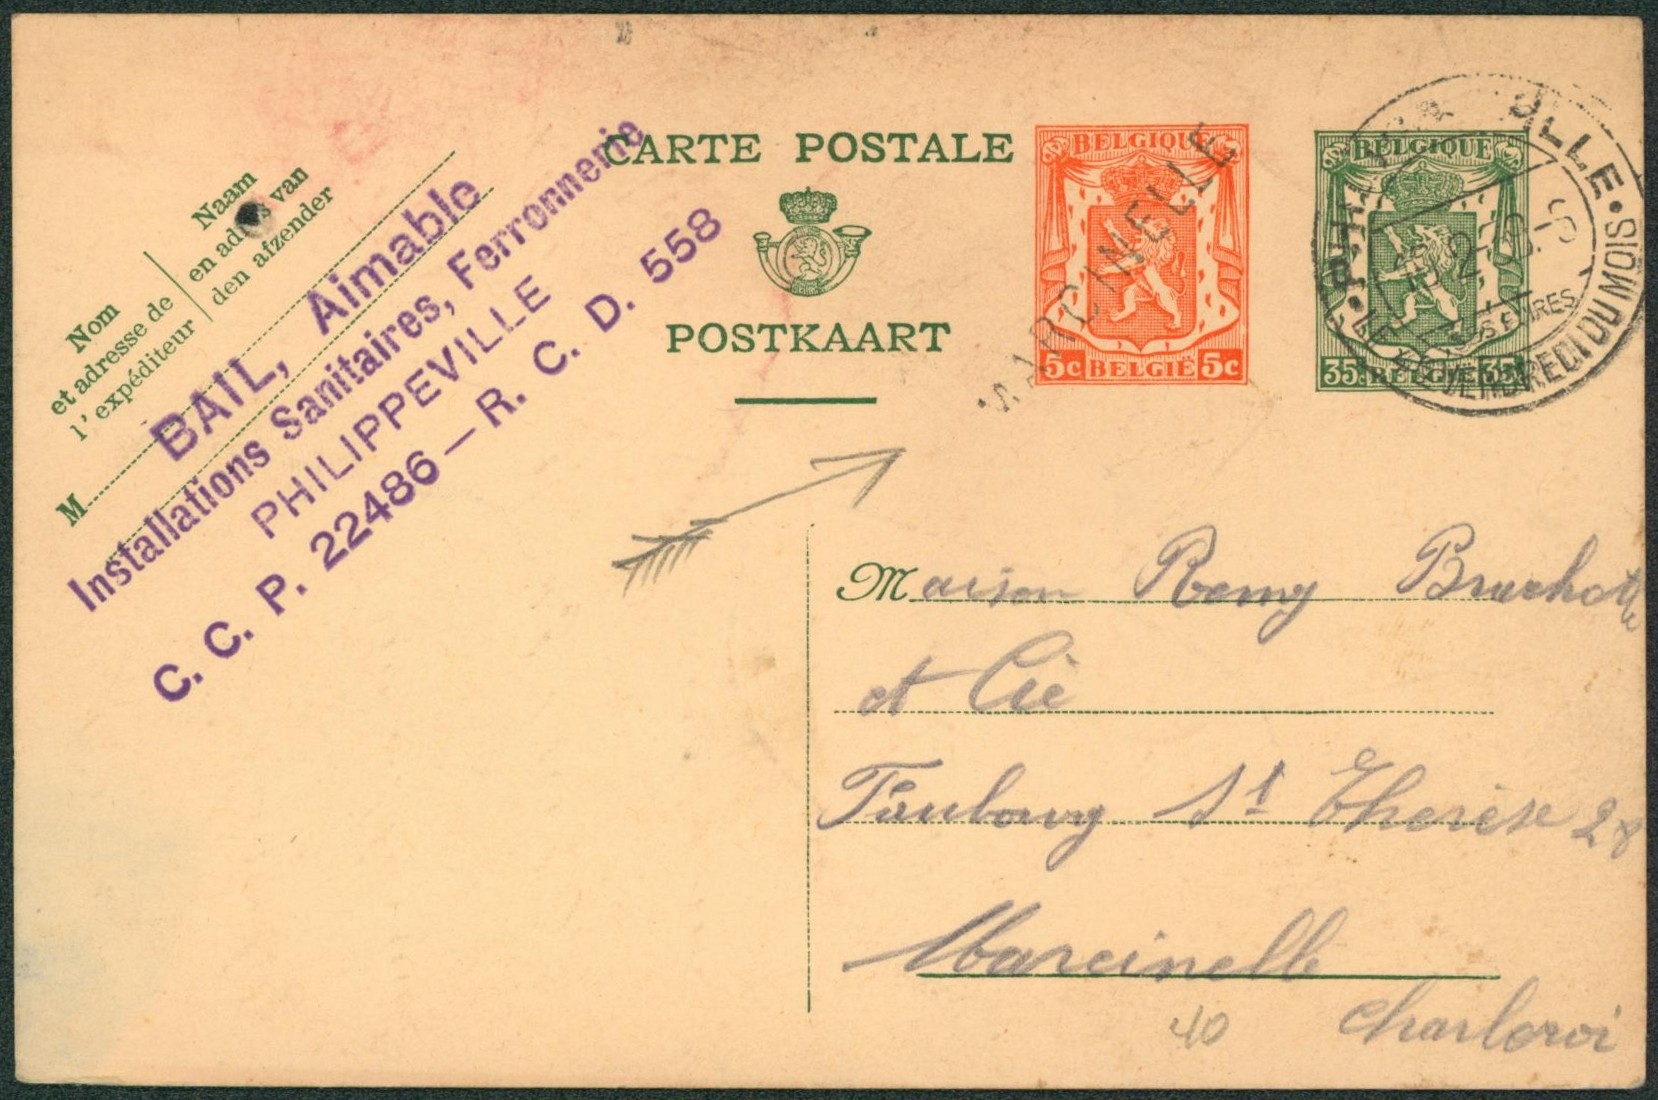 CARTE POSTALE
POSTKAART
Nom
et adresse de
l'expéditeur
Naam
en adres van
den afzender
M
BAIL, Aimable
Installations Sanitaires, Ferronnerie
PHILIPPEVILLE
C. C. P. 22486 — R. C. D. 558
BELGIQUE
5c BELGIË 5c
MARCINELLE
BELGIQUE
35c BELGIË 35c
VENDREDI DU MOIS
Maison Remy
et Cie
Faubourg St Therèse 28
Marcinelle
40
Charleroi